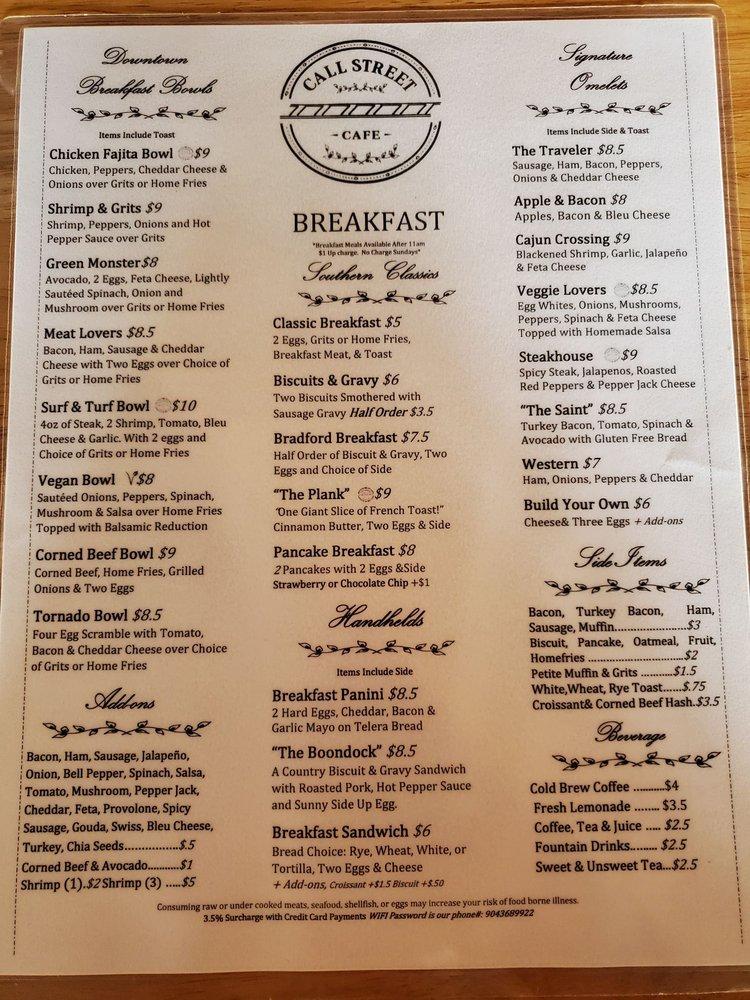 Downtown
Breakfast Bowls
Items Include Toast
Chicken Fajita Bowl $9
Chicken, Peppers, Cheddar Cheese &
Onions over Grits or Home Fries
Shrimp & Grits $9
Shrimp, Peppers, Onions and Hot
Pepper Sauce over Grits
Green Monster $8
Avocado, 2 Eggs, Feta Cheese, Lightly
Sautéed Spinach, Onion and
Mushroom over Grits or Home Fries
Meat Lovers $8.5
Bacon, Ham, Sausage & Cheddar
Cheese with Two Eggs over Choice of
Grits or Home Fries
Surf & Turf Bowl $10
4oz of Steak, 2 Shrimp, Tomato, Bleu
Cheese & Garlic. With 2 eggs and
Choice of Grits or Home Fries
Vegan Bowl V $8
Sautéed Onions, Peppers, Spinach,
Mushroom & Salsa over Home Fries
Topped with Balsamic Reduction
Corned Beef Bowl $9
Corned Beef, Home Fries, Grilled
Onions & Two Eggs
Tornado Bowl $8.5
Four Egg Scramble with Tomato,
Bacon & Cheddar Cheese over Choice
of Grits or Home Fries
Add-ons
Bacon, Ham, Sausage, Jalapeño,
Onion, Bell Pepper, Spinach, Salsa,
Tomato, Mushroom, Pepper Jack,
Cheddar, Feta, Provolone, Spicy
Sausage, Gouda, Swiss, Bleu Cheese,
Turkey, Chia Seeds................$.5
Corned Beef & Avocado..........$1
Shrimp (1).$2 Shrimp (3) .....$5
CALL STREET
- CAFE -
BREAKFAST
*Breakfast Meals Available After 11am
$1 Up charge. No Charge Sundays*
Southern Classics
Classic Breakfast $5
2 Eggs, Grits or Home Fries,
Breakfast Meat, & Toast
Biscuits & Gravy $6
Two Biscuits Smothered with
Sausage Gravy Half Order $3.5
Bradford Breakfast $7.5
Half Order of Biscuit & Gravy, Two
Eggs and Choice of Side
“The Plank” $9
“One Giant Slice of French Toast!”
Cinnamon Butter, Two Eggs & Side
Pancake Breakfast $8
2 Pancakes with 2 Eggs &Side
Strawberry or Chocolate Chip +$1
Handhelds
Items Include Side
Breakfast Panini $8.5
2 Hard Eggs, Cheddar, Bacon &
Garlic Mayo on Telera Bread
“The Boondock” $8.5
A Country Biscuit & Gravy Sandwich
with Roasted Pork, Hot Pepper Sauce
and Sunny Side Up Egg.
Breakfast Sandwich $6
Bread Choice: Rye, Wheat, White, or
Tortilla, Two Eggs & Cheese
+ Add-ons, Croissant +$1.5 Biscuit +$.50
Signature
Omelets
Items Include Side & Toast
The Traveler $8.5
Sausage, Ham, Bacon, Peppers,
Onions & Cheddar Cheese
Apple & Bacon $8
Apples, Bacon & Bleu Cheese
Cajun Crossing $9
Blackened Shrimp, Garlic, Jalapeño
& Feta Cheese
Veggie Lovers $8.5
Egg Whites, Onions, Mushrooms,
Peppers, Spinach & Feta Cheese
Topped with Homemade Salsa
Steakhouse $9
Spicy Steak, Jalapenos, Roasted
Red Peppers & Pepper Jack Cheese
“The Saint” $8.5
Turkey Bacon, Tomato, Spinach &
Avocado with Gluten Free Bread
Western $7
Ham, Onions, Peppers & Cheddar
Build Your Own $6
Cheese& Three Eggs + Add-ons
Side Items
Bacon, Turkey Bacon, Ham,
Sausage, Muffin......................$3
Biscuit, Pancake, Oatmeal, Fruit,
Homefries .............................$2
Petite Muffin & Grits ..........$1.5
White,Wheat, Rye Toast......$.75
Croissant& Corned Beef Hash.$3.5
Beverage
Cold Brew Coffee ..........$4
Fresh Lemonade ........ $3.5
Coffee, Tea & Juice ..... $2.5
Fountain Drinks......... $2.5
Sweet & Unsweet Tea...$2.5
Consuming raw or under cooked meats, seafood, shellfish, or eggs may increase your risk of food borne illness.
3.5% Surcharge with Credit Card Payments WIFI Password is our phone#: 9043689922